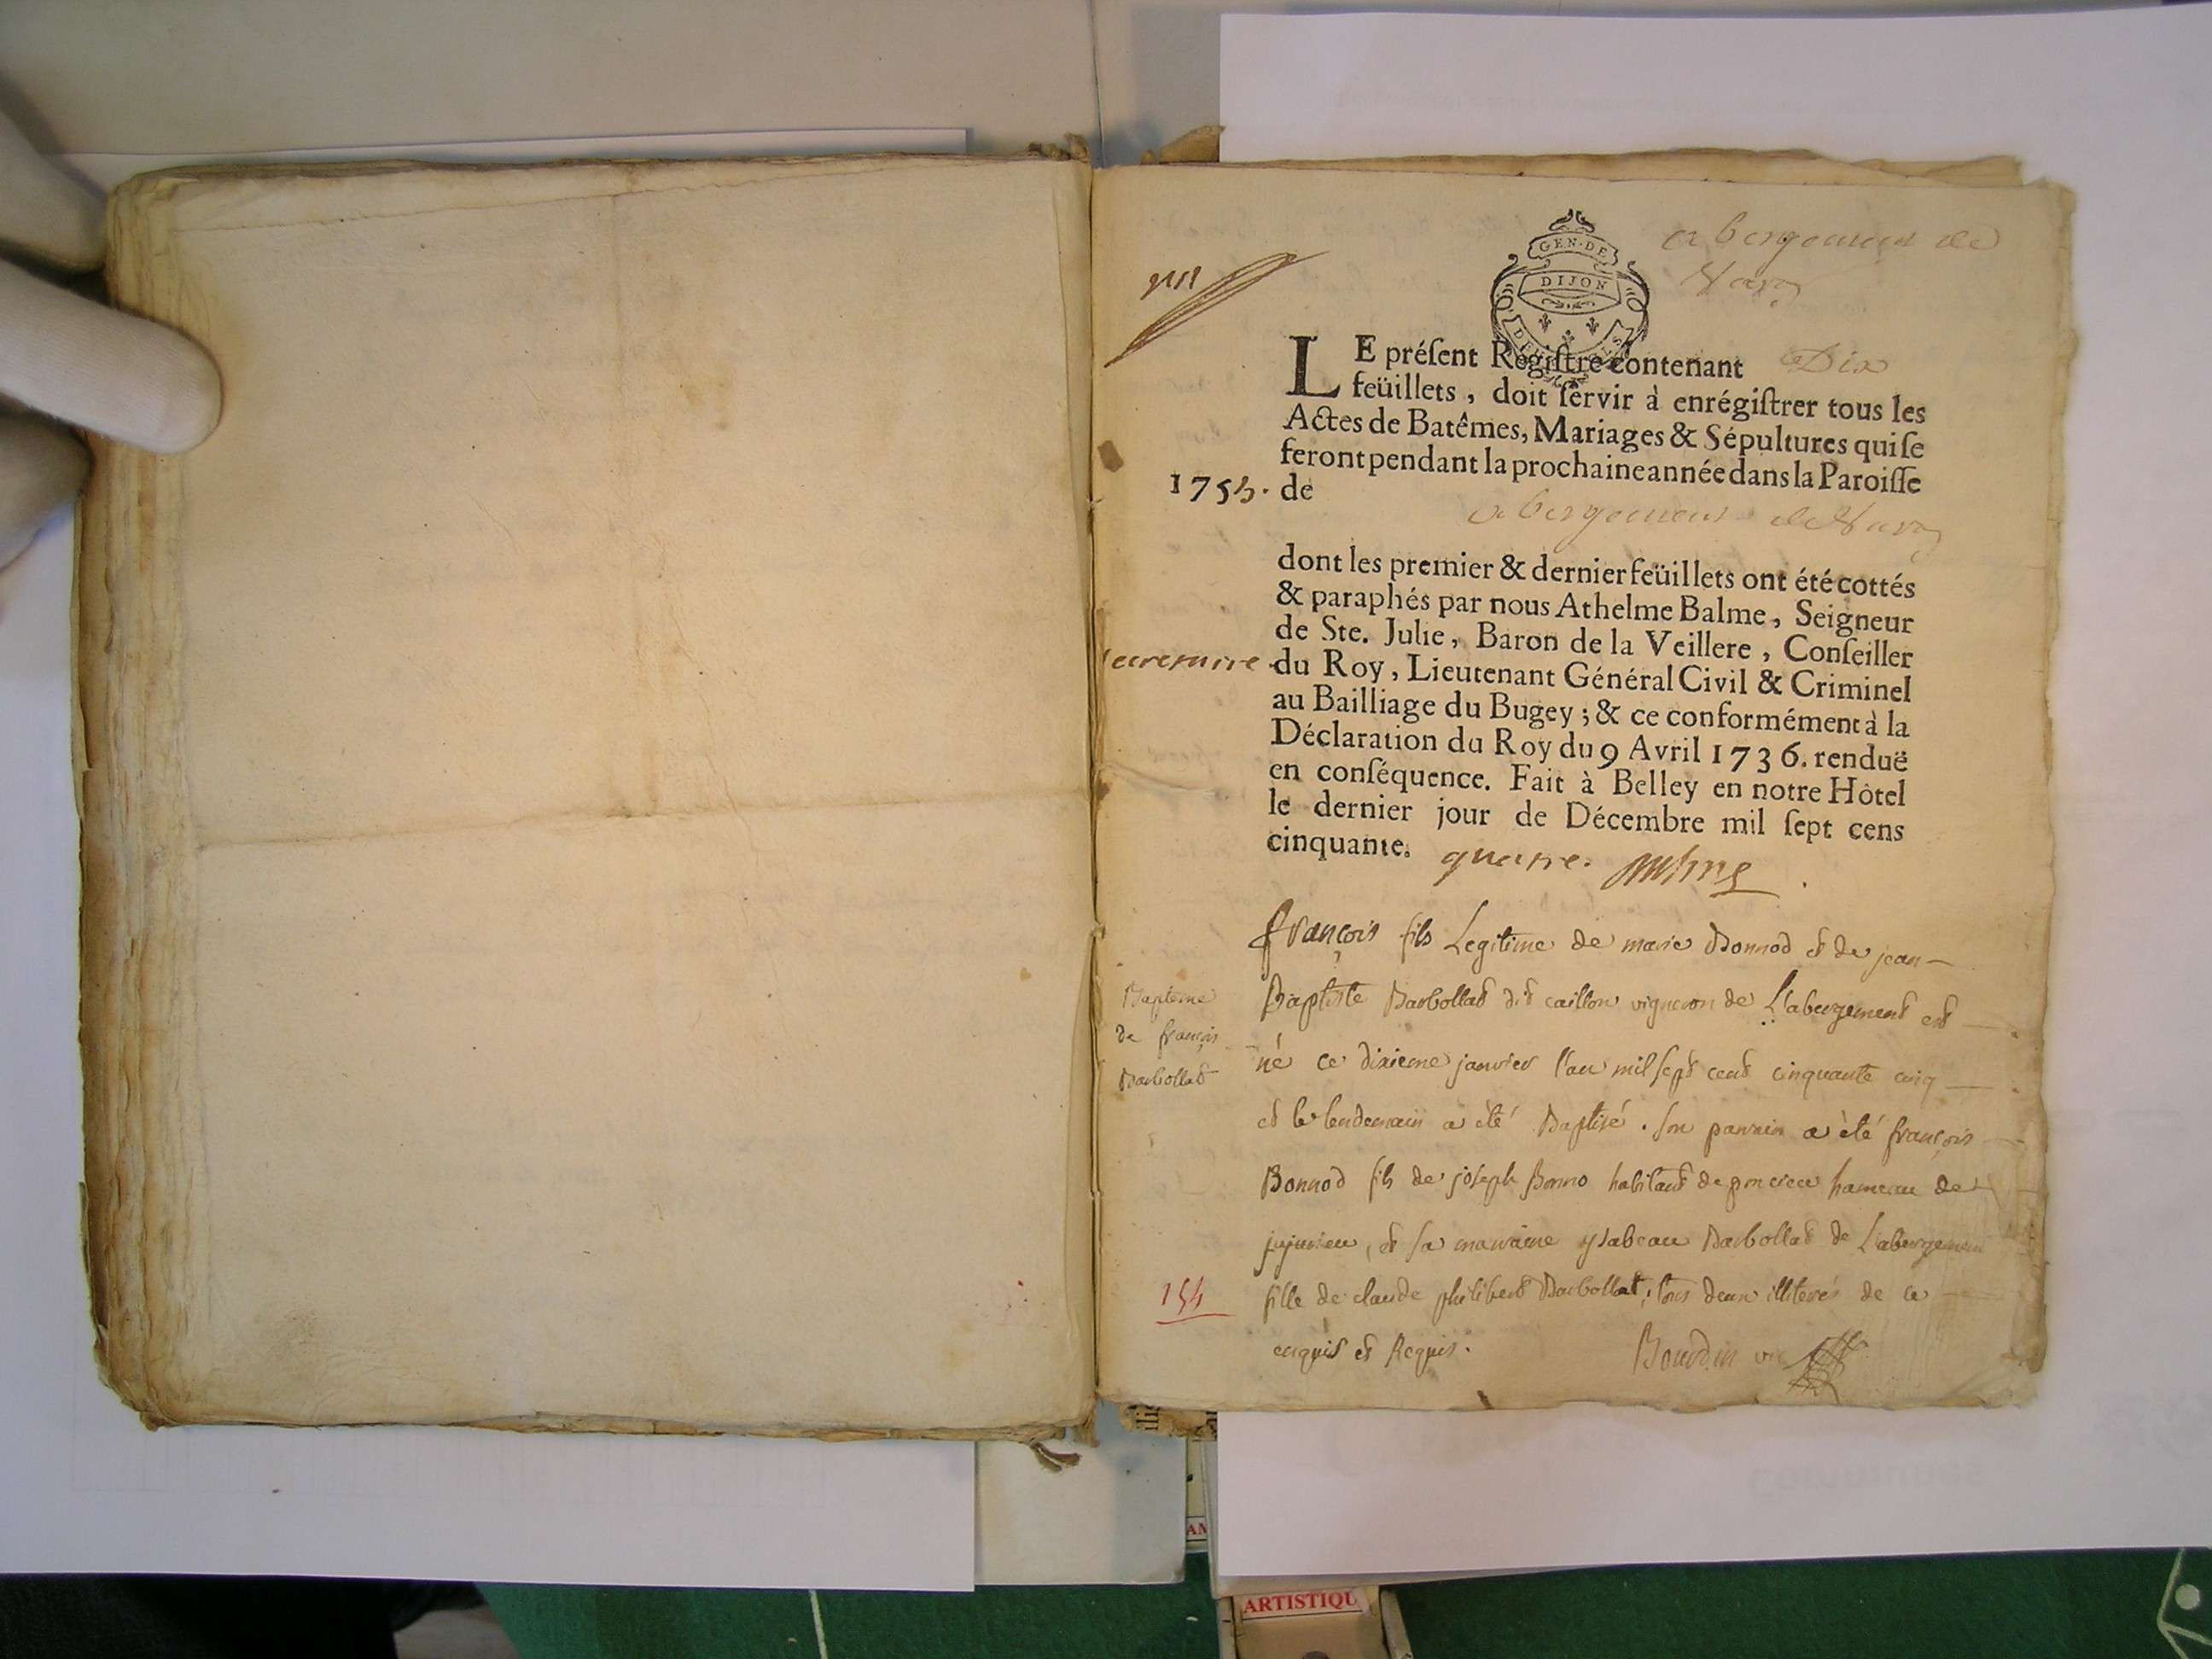 abergement de
Varey
GEN·DE
DIJON
LE préſent Régiſtre contenant Dix
feüillets, doit ſervir à enrégiſtrer tous les
Actes de Batêmes, Mariages & Sépultures qui ſe
feront pendant la prochaine année dans la Paroiſſe
1755. de
abergement de Varey
dont les premier & dernier feüillets ont été cottés
& paraphés par nous Athelme Balme, Seigneur
de Ste. Julie, Baron de la Veillere, Conſeiller
secretaire du Roy, Lieutenant Général Civil & Criminel
au Bailliage du Bugey; & ce conformément à la
Déclaration du Roy du 9 Avril 1736. renduë
en conſéquence. Fait à Belley en notre Hôtel
le dernier jour de Décembre mil ſept cens
cinquante. quatre.
françois fils Legitime de marie Bonnod et de jean
Baptiste Barbollat dit caillon vigneron de L'abergement est
né ce dixieme janvier l'an mil sept cent cinquante cinq
et le lendemain a été Baptisé. son parrain a été françois
Bonnod fils de joseph Bonno habitant de poncieu hameau de
jujurieu, et sa marraine ysabeau Barbollat de L'abergement
fille de claude philibert Barbollat, tous deux illiterés de ce
enquis et Requis.
Bourdin vic
Bapteme
de françois
Barbollat
154
ARTISTIQU